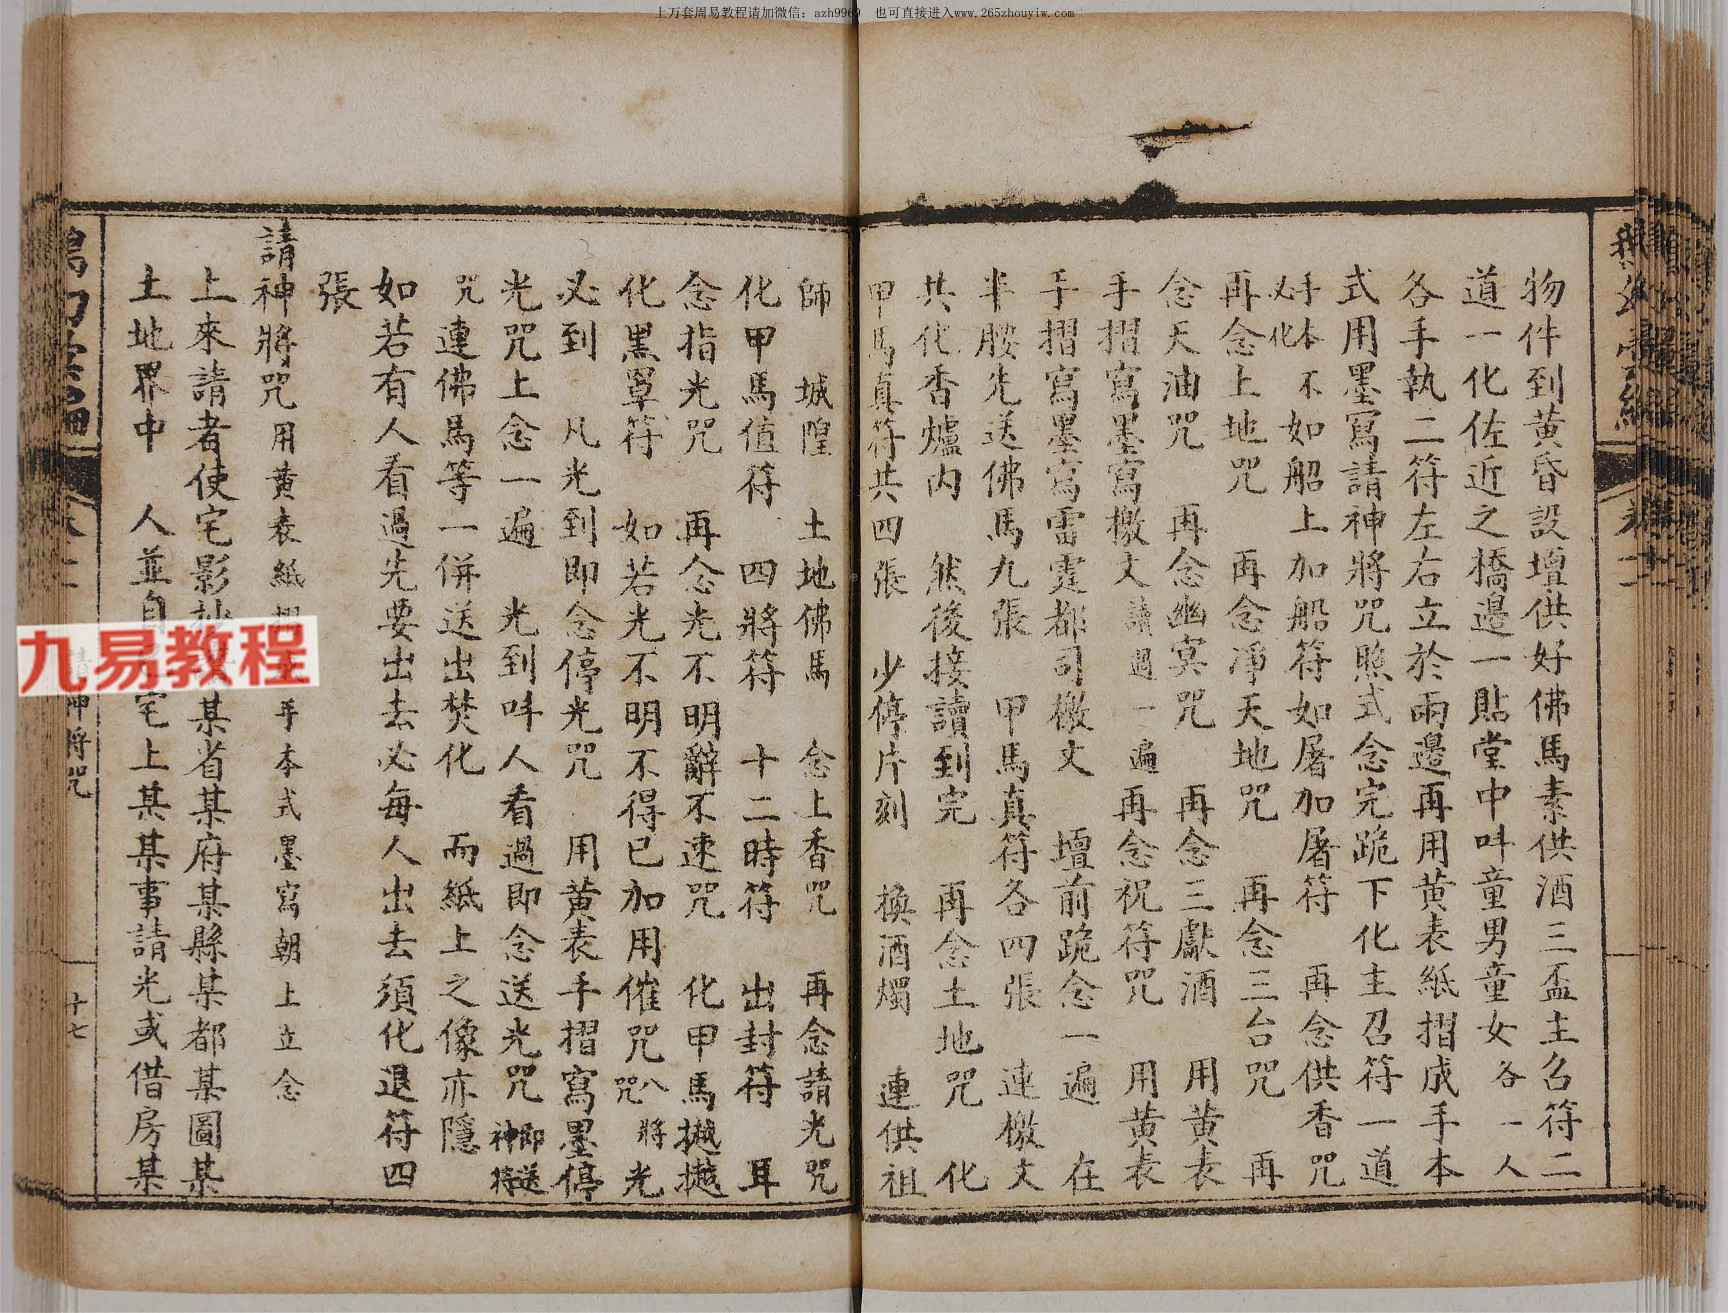 上万套周易教程请加微信：azh9969 也可直接进入www.265zhouyiw.com
物件到黄昏設壇供好佛馬素供酒三盃主召符二
道一化佐近之橋邉一貼堂中呌童男童女各一人
各手執二符左右立於兩邉再用黄表紙摺成手本
式用墨寫請神將咒照式念完跪下化主召符一道
手本必化 不如船上加船符如屠加屠符 再念供香咒
再念上地咒 再念凈天地咒 再念三台咒 再
念天油咒 再念幽㝠咒 再念三獻酒 用黄表
手摺寫墨寫檄文讀過一遍 再念祝符咒 用黄表
手摺寫墨寫雷霆都司檄文 壇前跪念一遍 在
半腰先送佛馬九張 甲馬真符各四張 連檄文
共化香爐内 然後接讀到完 再念土地咒 化
甲馬真符共四張 少停片刻 換酒燭 連供祖
師 城隍 土地佛馬 念上香咒 再念請光咒
化甲馬值符 四將符 十二時符 出封符 耳
念指光咒 再念光不明辭不速咒 化甲馬撼撼
化黑罩符 如若光不明不得已加用催咒八將咒 光
必到 凡光到即念停光咒 用黄表手摺寫墨停
光咒上念一遍 光到呌人看過即念送光咒即送神將
咒連佛馬等一併送出焚化 而紙上之像亦隱
如若有人看過先要出去必每人出去須化退符四
張
請神將咒用黄表紙摺手本式墨寫朝上立念
上來請者使宅影某省某府某縣某都某圖某
土地界中 人並宅上某某事請光或借房某
神將咒
十七
九易教程